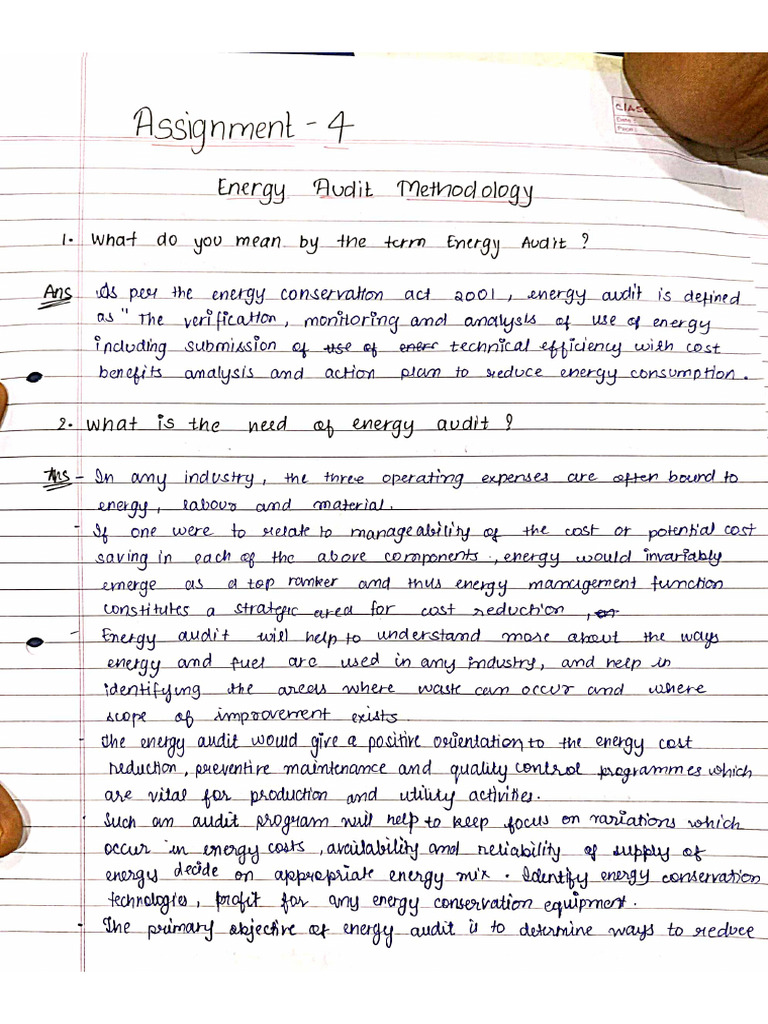 Assignment - 4
Energy Audit Methodology
1. What do you mean by the term Energy Audit ?
Ans As per the energy conservation act 2001, energy audit is defined
as " The verification, monitoring and analysis of use of energy
including submission of use of ener technical efficiency with cost
benefits analysis and action plan to reduce energy consumption.
2. What is the need of energy audit ?
Ans - In any industry, the three operating expenses are often bound to
energy, labour and material.
- If one were to relate to manageability of the cost or potential cost
saving in each of the above components, energy would invariably
emerge as a top ranker and thus energy management function
constitutes a strategic area for cost reduction,
- Energy audit will help to understand more about the ways
energy and fuel are used in any industry, and help in
identifying the areas where waste can occur and where
scope of improvement exists.
- The energy audit would give a positive orientation to the energy cost
reduction, preventive maintenance and quality control programmes which
are vital for production and utility activities.
- Such an audit program will help to keep focus on variations which
occur in energy costs, availability and reliability of supply of
energy decide on appropriate energy mix. Identify energy conservation
technologies, profit for any energy conservation equipment.
- The primary objective of energy audit is to determine ways to reduce